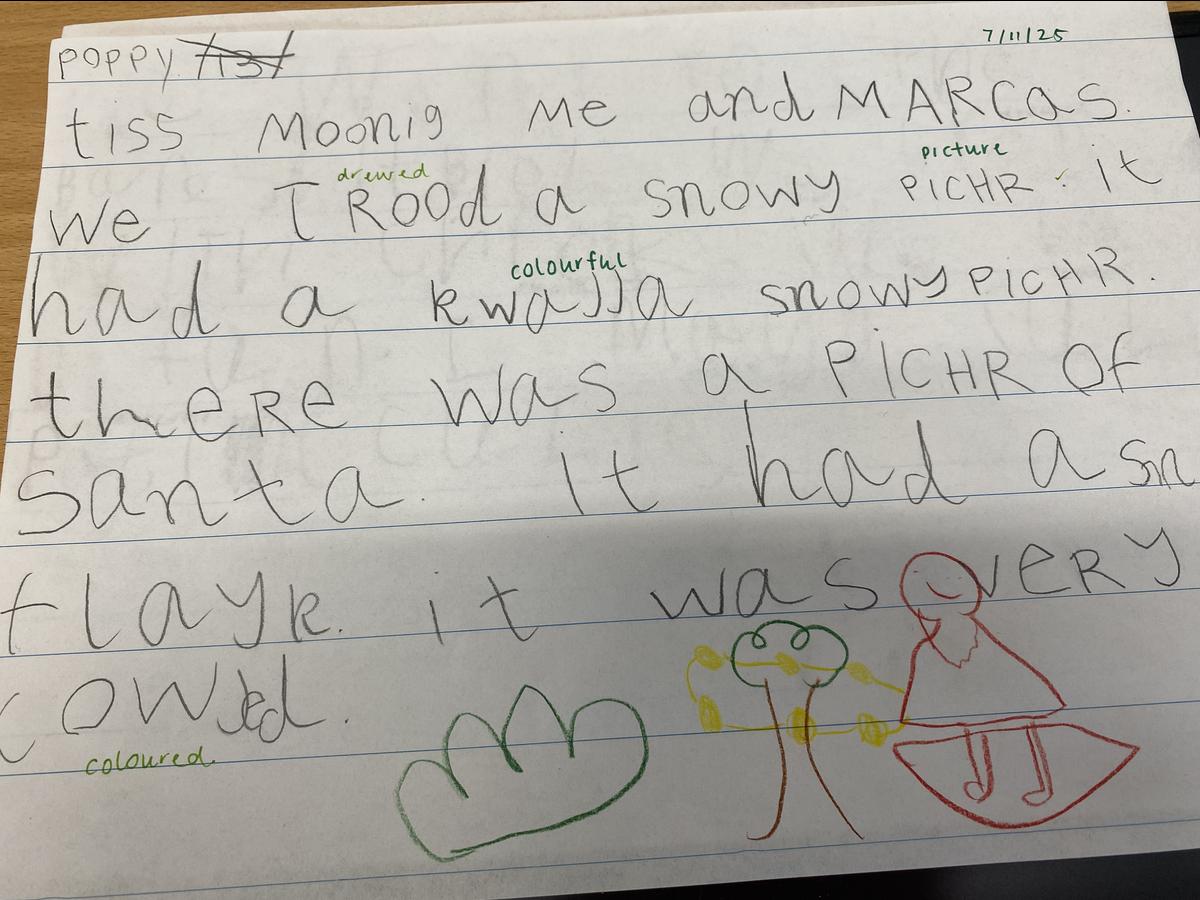 poppy 7/11/25
tiss Moonig Me and MARCas.
drewed picture
we TROOd a snowy PICHR. it
colourful
had a kwalla snowy PiCHR.
theRe was a PiCHR Of
santa. It had a sn
flayk. it was veRy
cowed.
coloured.